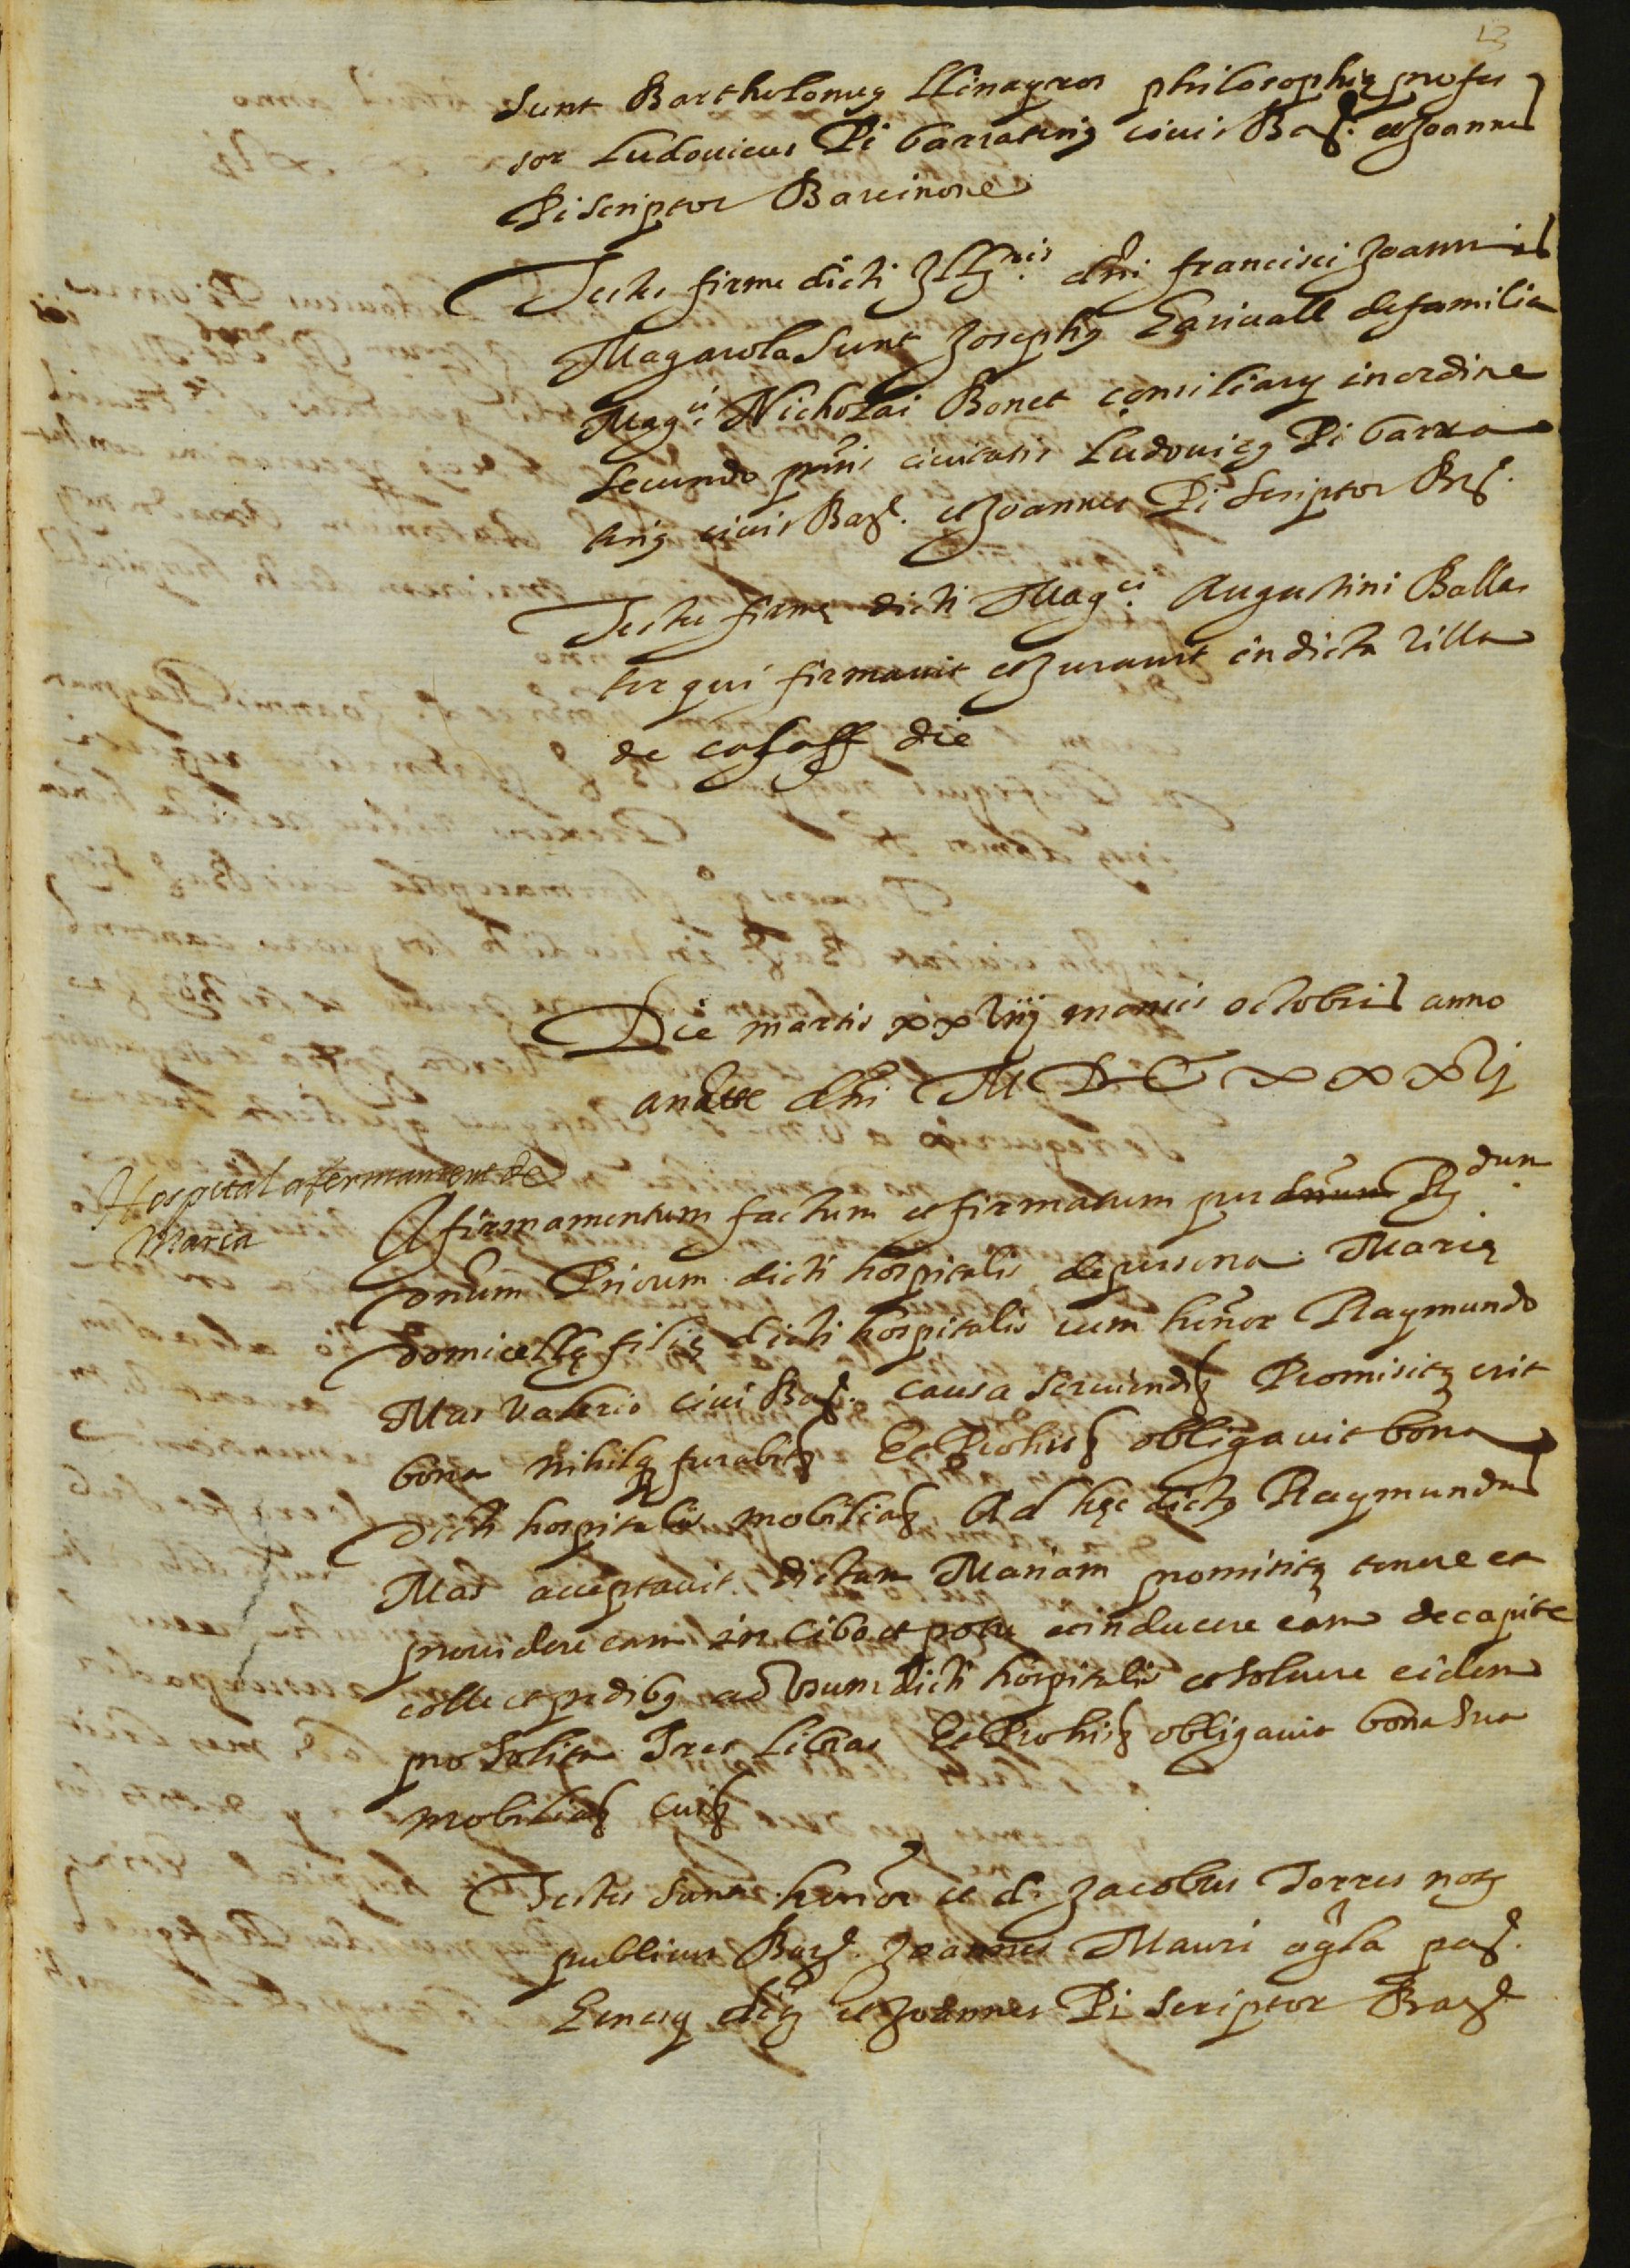 13
sunt Bartholomeus Llinayros philosophię profes
sor Ludovicus Pi barratinus civis Barᵉ. et Joannes
Pi scriptor Barcinone
Testes firme dicti Illᵘˢ. dñi francisci Joannis
Magarola sunt Josephus de familia
Magᶜⁱ. Nicholai Bonet consiliarij in ordine
secundo pñtis civitatis Ludovicus Pi barra
tinus civis Barᵉ. et Joannes Pi scriptor Barᵉ.
Testes firmę dicti Magᶜⁱ. Augustini Balles
ter qui firmavit et Juravit in dicta villa
de die
Die martis xxviiij mensis octobris anno
anatte dñi M D C xxxvj
Hospital afermament de
Maria
Afirmamentum factum et firmatum per dnum Rᵈᵘᵐ.
dñum Priorem dicti hospitalis de persona Marię
domicellę filię dicti hospitalis cum honor Raymundo
Mas Valerio civi Barᵉ. causa serviendi Promisitq erit
bona nihilq furabit Et Pro his obligavit bona
dicti hospitalis mobilia Ad hęc dictus Raymundus
Mas acceptavit dictam Mariam promisitq tenere et
providere eam in cibo et potu et inducere eam de capite
colle et pedibus ad usum dicti hospitalis et solvere eidem
pro solita Tres Libras Et Pro his obligavit bona sua
mobilia
Testes sunt honor et d. Jacobus Torres notus
publicus Barᵉ. Joannes Mauri
et Joannes Pi scriptor Barᵉ